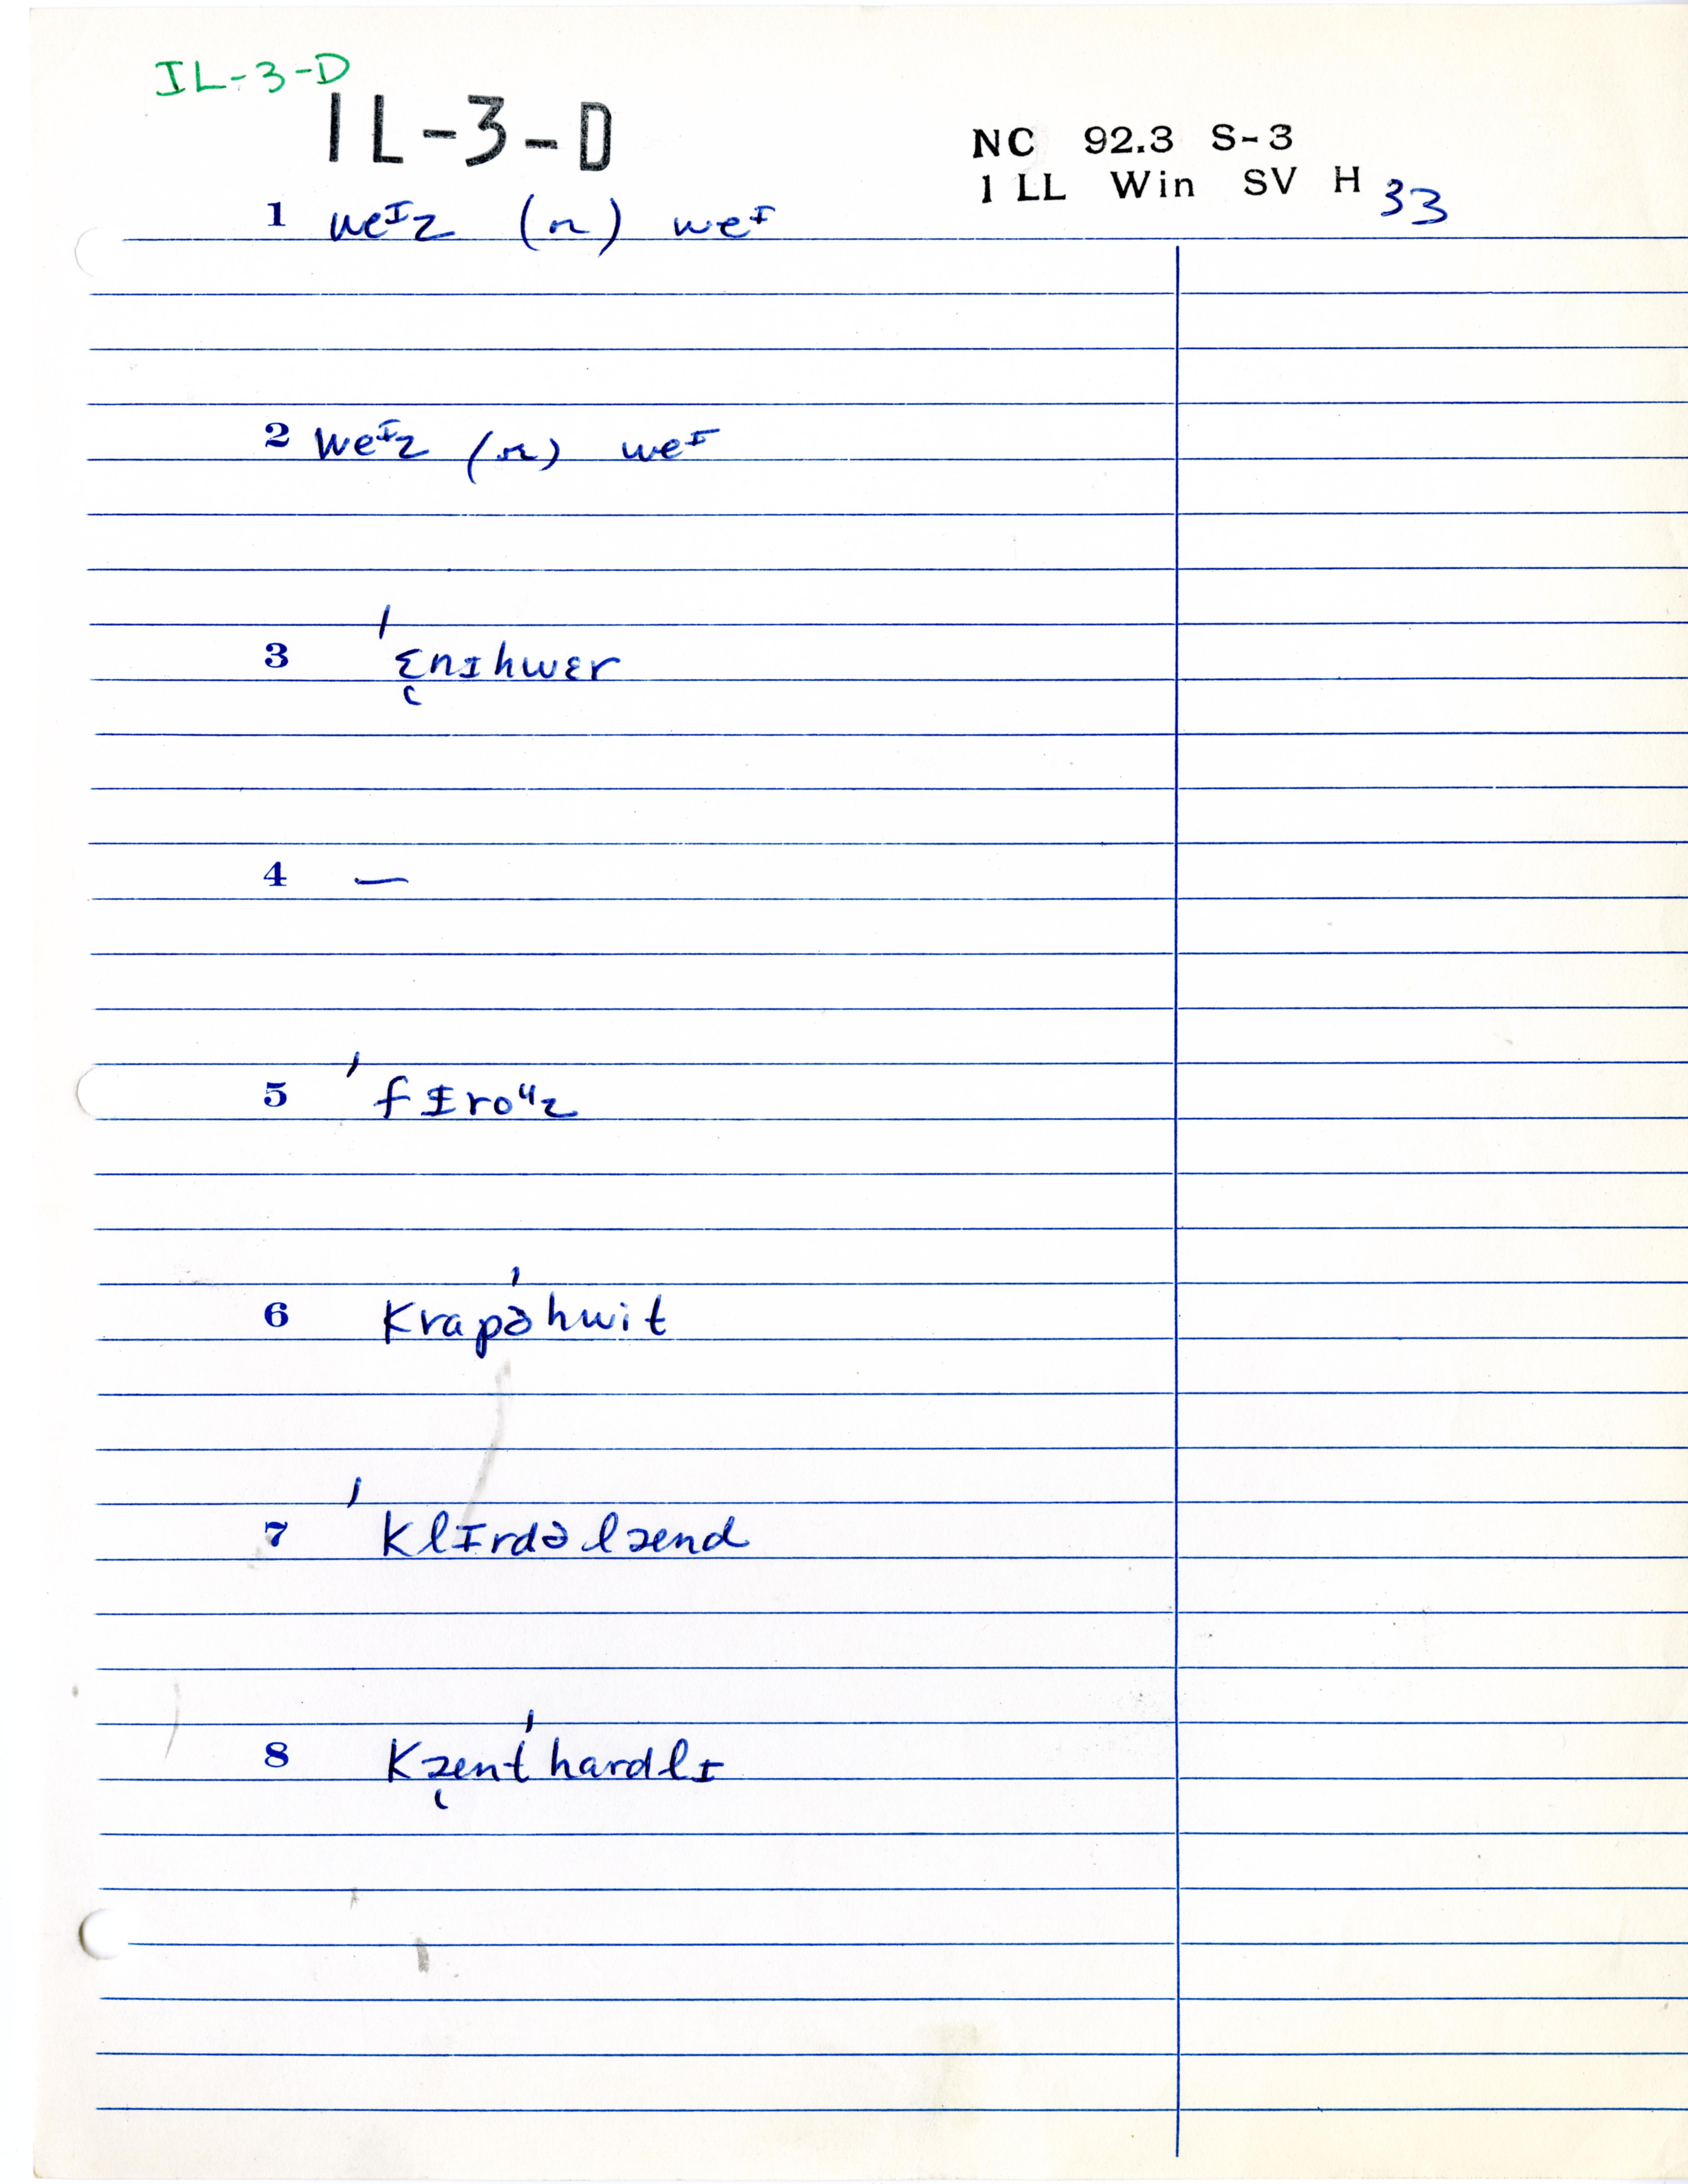 IL-3-D
IL-3-D
NC 92.3 S-3
1 LL Win SV H 33
1 weᶦz (n) weᶦ
2 weᶦz (n) weᶦ
3 ˈɛ̨nɪhwɛr
4 —
5 ˈfɪroᶸz
6 krapˈəhwit
7 ˈklɪrdəlænd
8 kæ̨ntˈhardlɪ